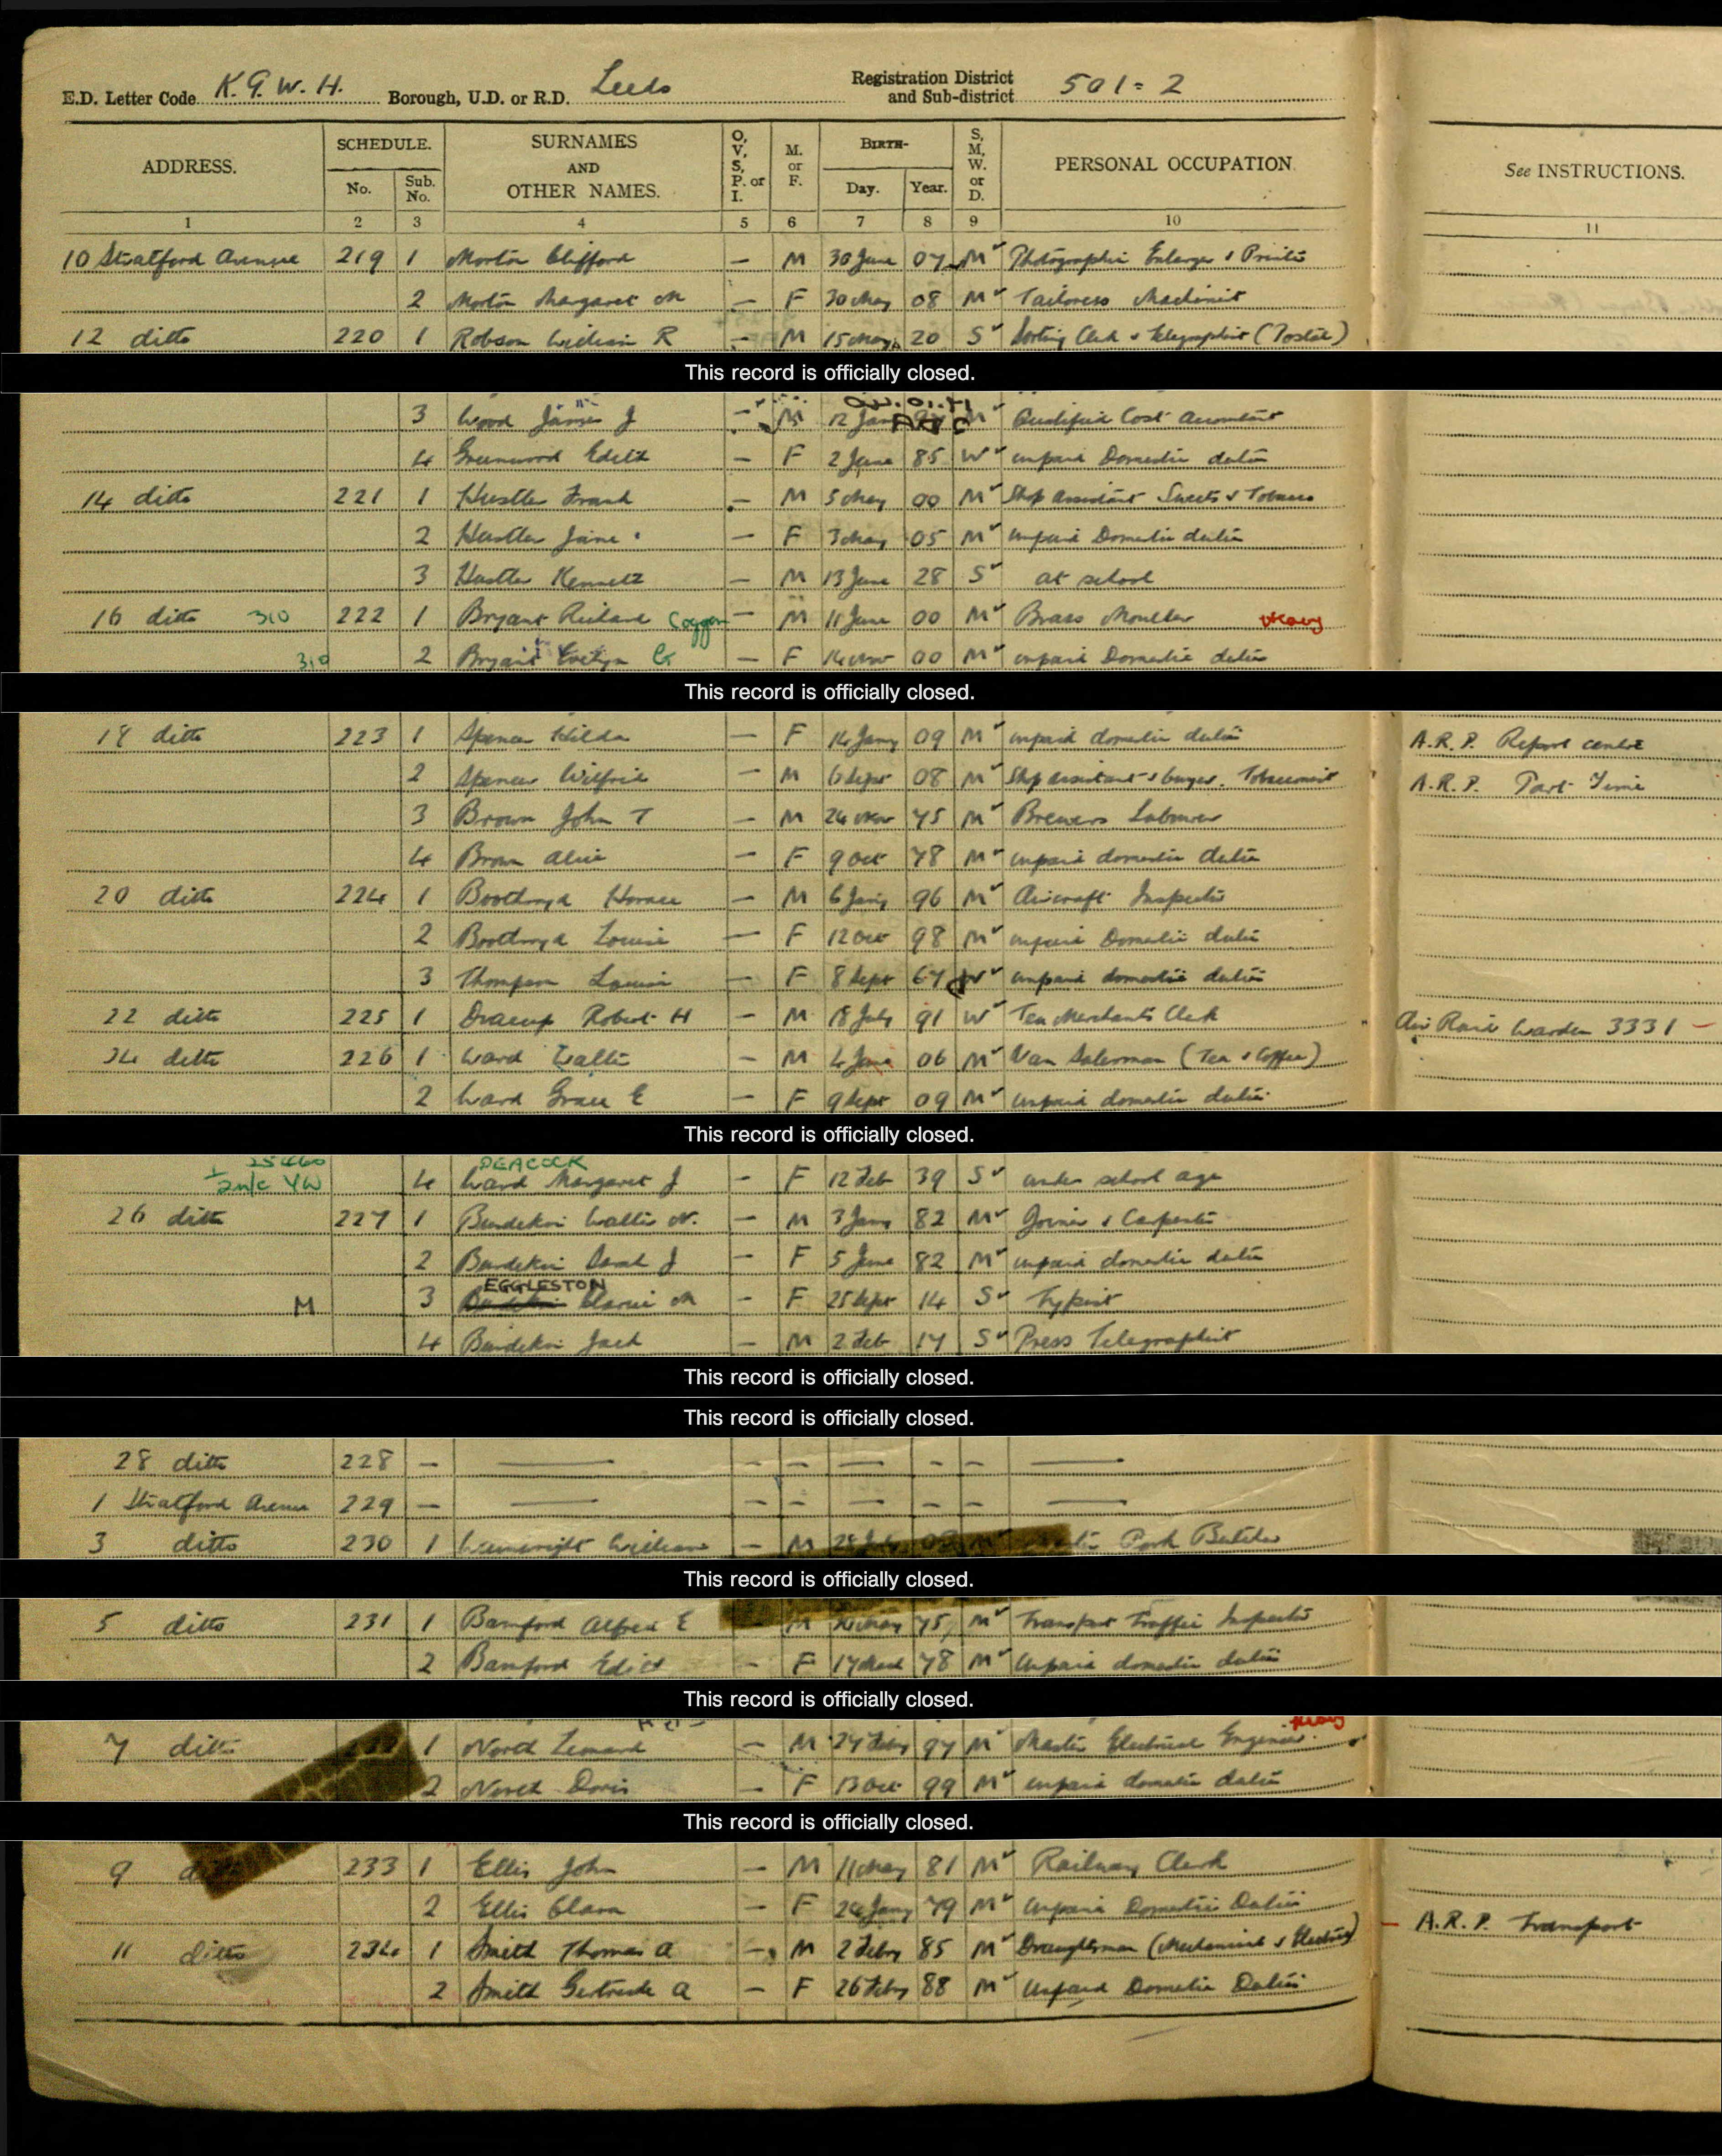 E.D. Letter Code K.G.W.H. Borough, U.D. or R.D. Leeds Registration District and Sub-district 501=2
ADDRESS. SCHEDULE. No. Sub. No. SURNAMES AND OTHER NAMES. O, V, S, P. or I. M. or F. BIRTH- Day. Year. S, M, W. or D. PERSONAL OCCUPATION See INSTRUCTIONS.
1 2 3 4 5 6 7 8 9 10 11
10 Stratford Avenue 219 1 Morton Clifford — M 30 June 07 M Photographic Enlarger & Printer
2 Morton Margaret M — F 30 May 08 M Tailoress Machinist
12 ditto 220 1 Robson William R — M 15 May 20 S Sorting Clerk & Telegraphist (Postal)
This record is officially closed.
3 Wood James J — M 12 Jan M Qualified Cost Accountant
4 Greenwood Edith — F 2 June 85 W unpaid Domestic duties
14 ditto 221 1 Hustler Frank — M 5 May 00 M Shop Assistant Sweets & Tobacco
2 Hustler Jane — F 3 May 05 M unpaid Domestic duties
3 Hustler Kenneth — M 13 June 28 S at school
16 ditto 310 222 1 Bryant Richard Coggan — M 11 June 00 M Brass Moulder Heavy
310 2 Bryant Evelyn G — F 14 Nov 00 M unpaid Domestic duties
This record is officially closed.
18 ditto 223 1 Spencer Hilda — F 14 Jany 09 M unpaid domestic duties A.R.P. Report centre
2 Spencer Wilfrid — M 6 Sept 08 M Shop assistant & buyer. Tobacconist A.R.P. Part-Time
3 Brown John T — M 24 Nov 75 M Brewers Labourer
4 Brown Alice — F 9 Oct 78 M unpaid domestic duties
20 ditto 224 1 Boothroyd Horace — M 6 Jany 96 M Aircraft Inspector
2 Boothroyd Louise — F 12 Oct 98 M unpaid Domestic duties
3 Thompson Louise — F 8 Sept 67 W unpaid domestic duties
22 ditto 225 1 Dracup Robert H — M 18 July 91 W Tea Merchants Clerk Air Raid Warden 3331 —
24 ditto 226 1 Ward Walter — M 4 June 06 M Van Salesman (Tea & Coffee)
2 Ward Grace E — F 9 Sept 09 M unpaid domestic duties
This record is officially closed.
PEACOCK
4 Ward Margaret J — F 12 Feb 39 S under school age
26 ditto 227 1 Burdekin Walter N. — M 3 Jany 82 M Joiner & Carpenter
2 Burdekin Sarah J — F 5 June 82 M unpaid domestic duties
EGGLESTON
M 3 Burdekin Clarice M — F 25 Sept 14 S Typist
4 Burdekin Jack — M 2 Feb 17 S Press Telegraphist
This record is officially closed.
This record is officially closed.
28 ditto 228 — — — — — — — —
1 Stratford Avenue 229 — — — — — — — —
3 ditto 230 1 Wainwright William — M M Pork Butcher
This record is officially closed.
5 ditto 231 1 Bamford Alfred E M May 75 M Transport Traffic Inspector
2 Bamford Edith — F 17 March 78 M Unpaid domestic duties
This record is officially closed.
7 ditto 1 North Leonard — M 27 Feby 97 M Master Electrical Engineer. Heavy
2 North Doris — F 13 Oct 99 M unpaid domestic duties
This record is officially closed.
9 233 1 Ellis John — M 11 May 81 M Railway Clerk
2 Ellis Clara — F 24 Jany 79 M Unpaid Domestic Duties
11 ditto 234 1 Smith Thomas A — M 2 Febry 85 M Draughtsman (Mechanical & Electrical) — A.R.P. Transport
2 Smith Gertrude A — F 26 Febry 88 M Unpaid Domestic Duties